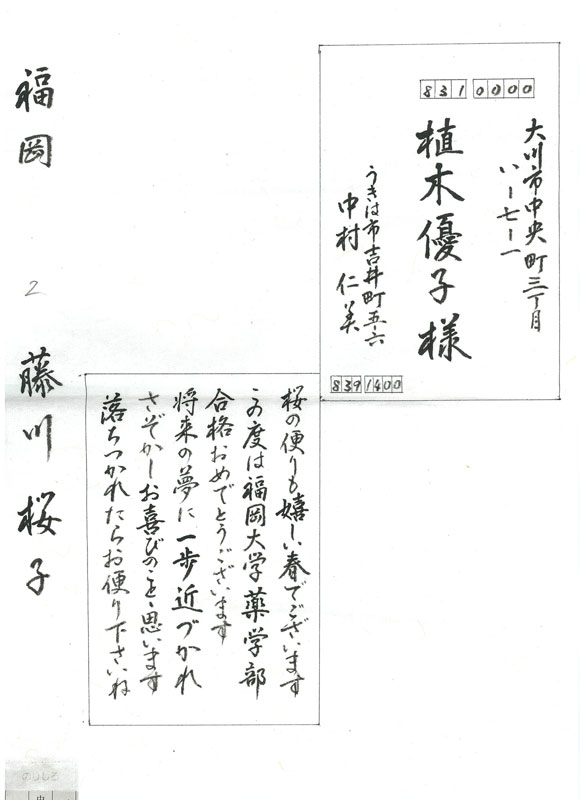 8310000
大川市中央町三丁目
い-七-一
植木優子様
うきは市吉井町五-六
中村 仁美
8391400
桜の便りも嬉しい春でございます
この度は福岡大学薬学部
合格おめでとうございます
将来の夢に一歩近づかれ
さぞかしお喜びのことゝ思います
落ちつかれたらお便り下さいね
福岡 2 藤川桜子
のりしろ